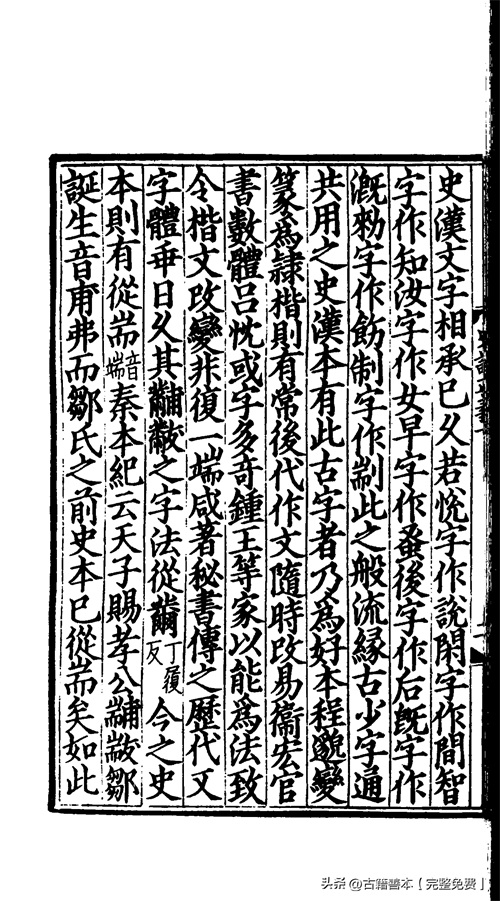 史漢文字相承已久若悅字作說閑字作間智
字作知汝字作女早字作蚤後字作后既字作
溉勑字作飭制字作剬此之般流緣古少字通
共用之史漢本有此古字者乃爲好本程邈變
篆爲隸楷則有常後代作文隨時改易衞宏官
書數體呂忱或字多奇鍾王等家以能爲法致
令楷文改變非復一端咸著祕書傳之歷代又
字體乖日久其黼黻之字法從黹丁履反今之史
本則有從耑音端秦本紀云天子賜孝公黼黻鄒
誕生音甫弗而鄒氏之前史本已從耑矣如此
頭条 @古籍善本【完整免费】